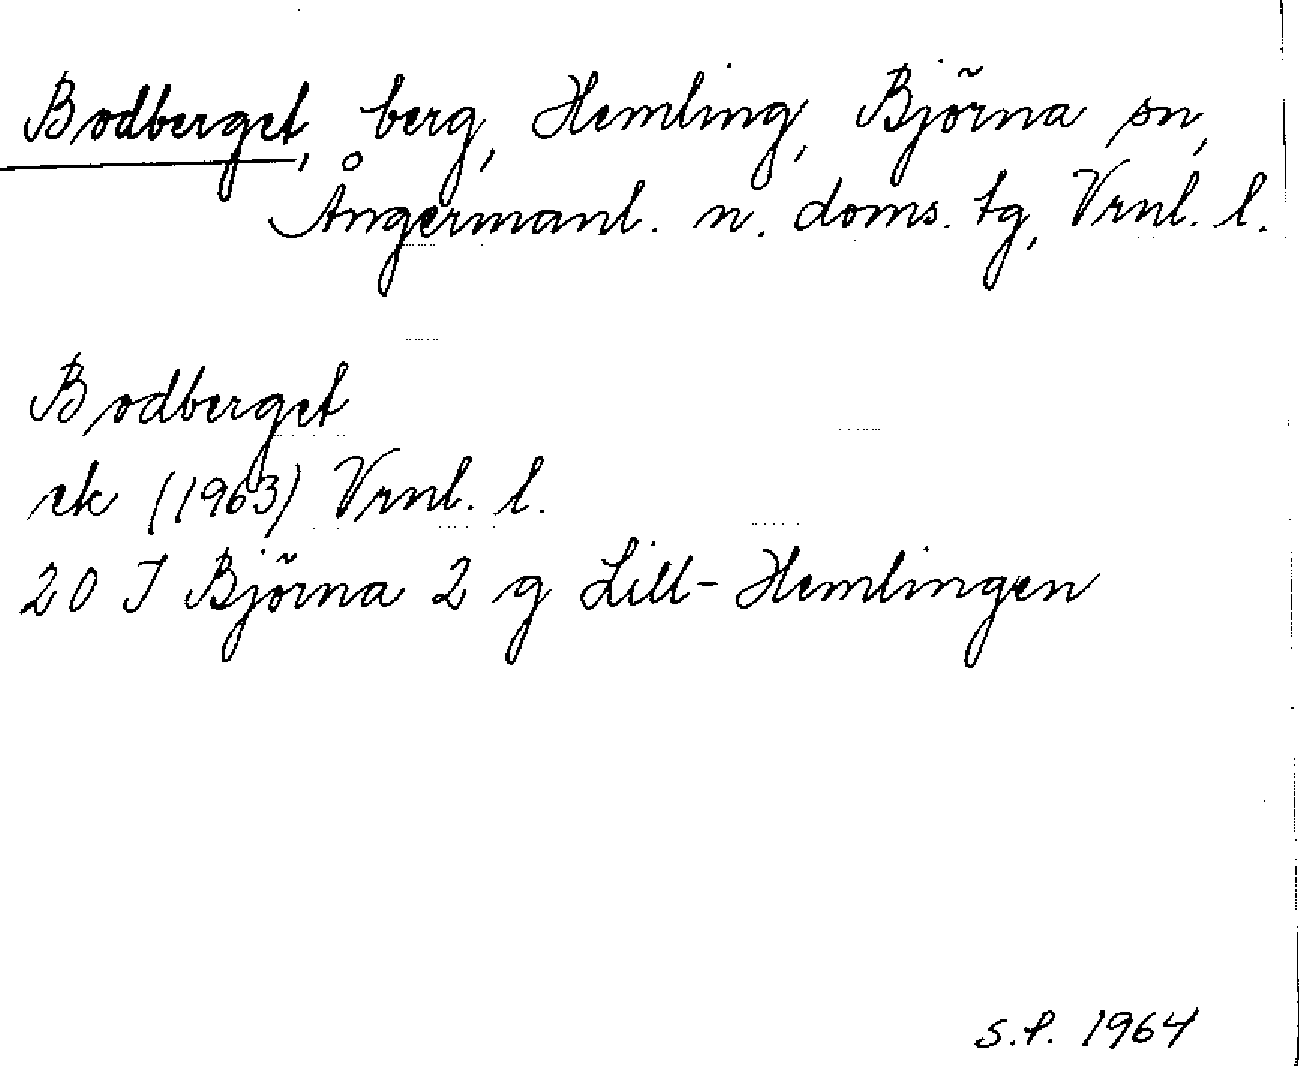 Bodberget, berg, Hemling, Björna sn,
Ångermanl. n. doms. tg, Vrnl. l.
Bodberget
ek (1963) Vrnl. l.
20 I Björna 2 g Lill-Hemlingen
S.P. 1964